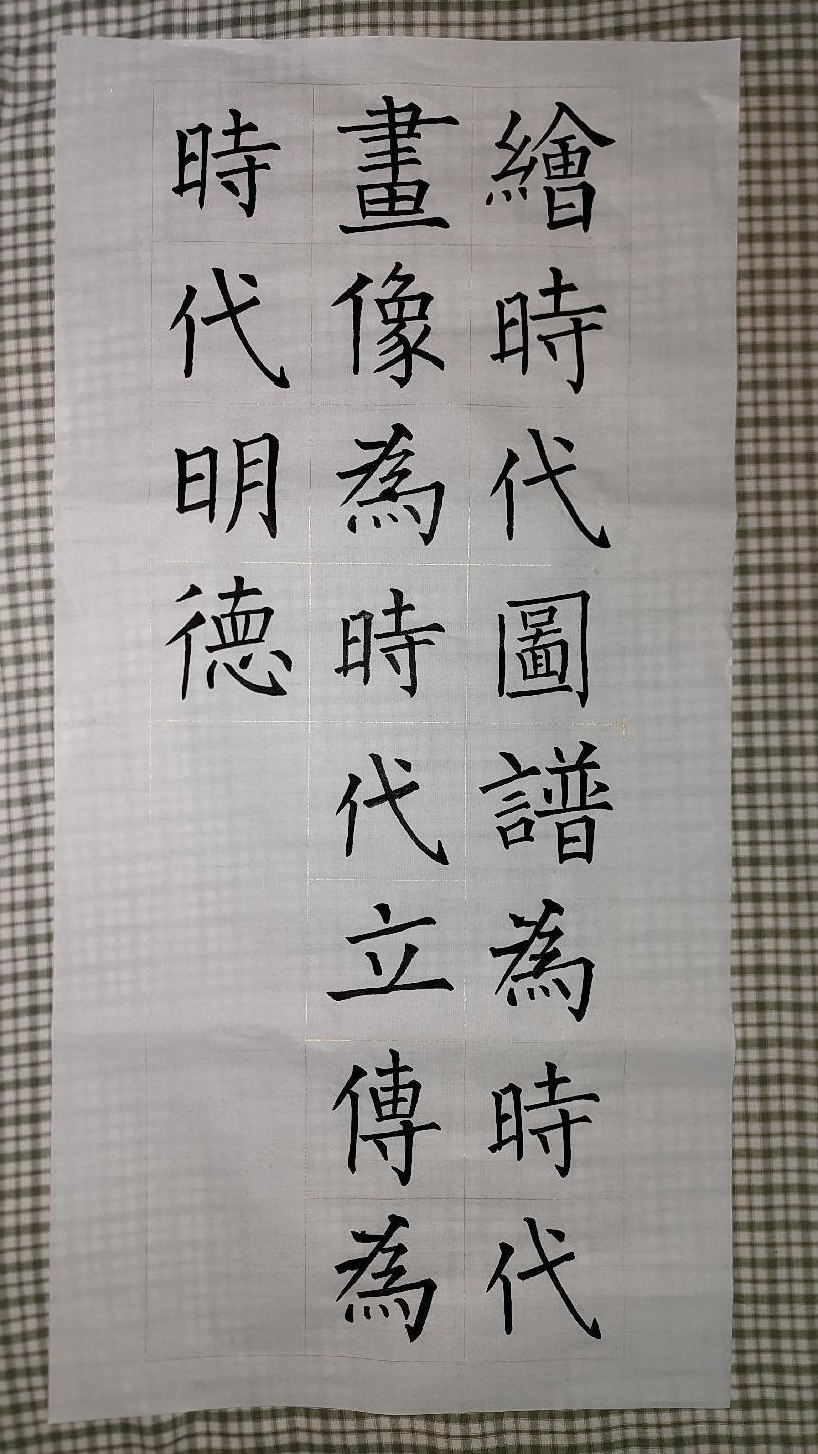 繪時代圖譜為時代
畫像為時代立傳為
時代明德